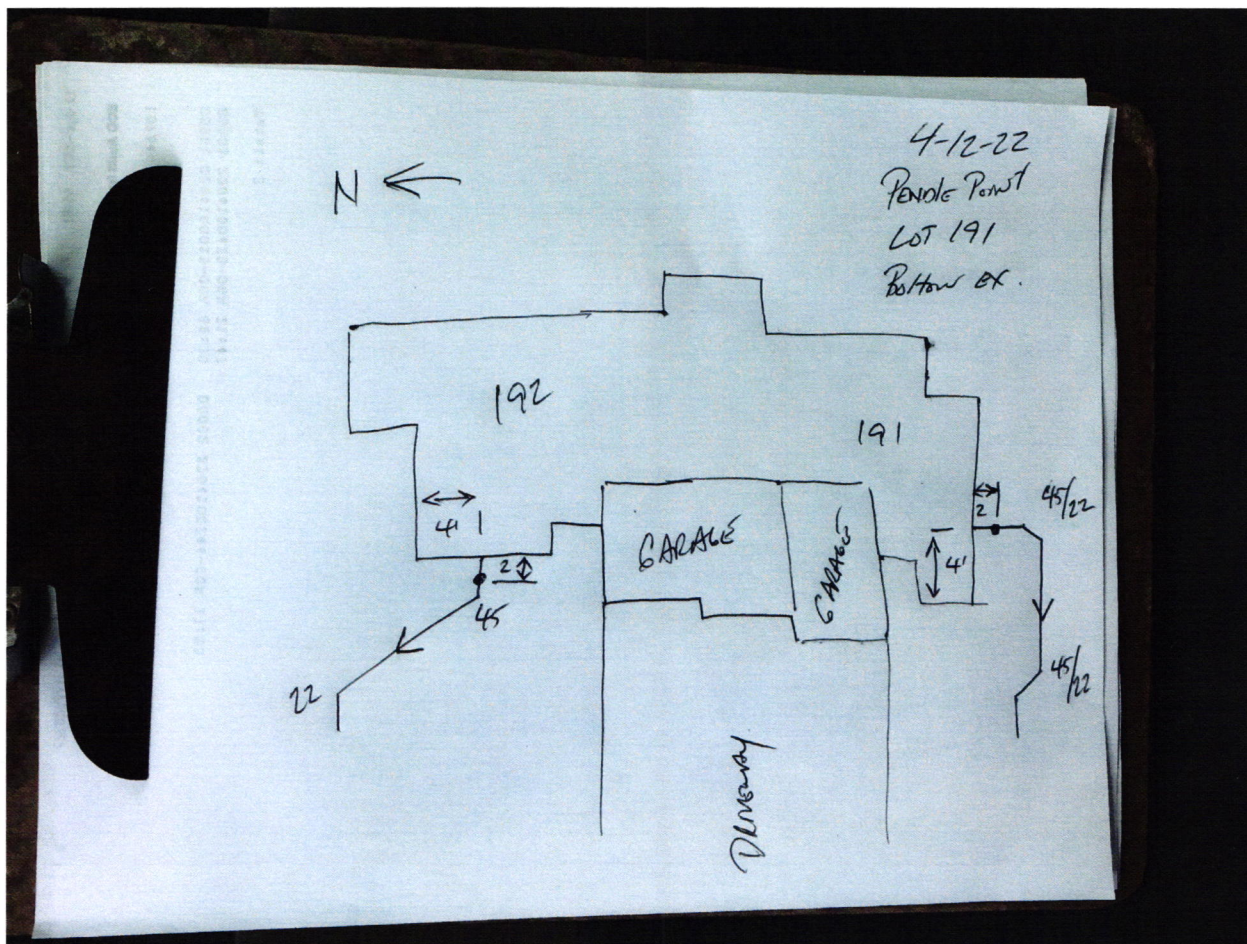 4-12-22
PENDLE POINT
LOT 191
Bottom EX.
N
192
191
4'
2
45
22
GARAGE
GARAGE
2
45/22
4'
45/22
DRIVEWAY